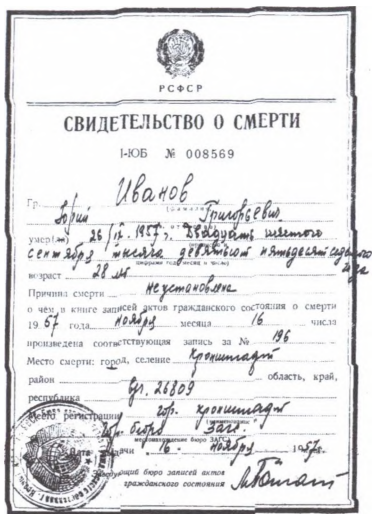 РСФСР
СВИДЕТЕЛЬСТВО О СМЕРТИ
I-ЮБ № 008569
Гр. Иванов
(фамилия)
Юрий Григорьевич
умер(ла) 26/IX-1957г. Двадцать шестого
сентября тысяча девятьсот пятьдесят седьмого
года
возраст 28 лет
Причина смерти неустановлена
о чем в книге записей актов гражданского состояния о смерти
1957 года ноября месяца 16 числа
произведена соответствующая запись за № 196
Место смерти: город, селение Кронштадт
район область, край,
республика в/ч. 26809
Место регистрации гор. Кронштадт
гор. бюро Загс.
местонахождение бюро ЗАГС
Дата выдачи „16“ ноября 1957г.
бюро записей актов
гражданского состояния